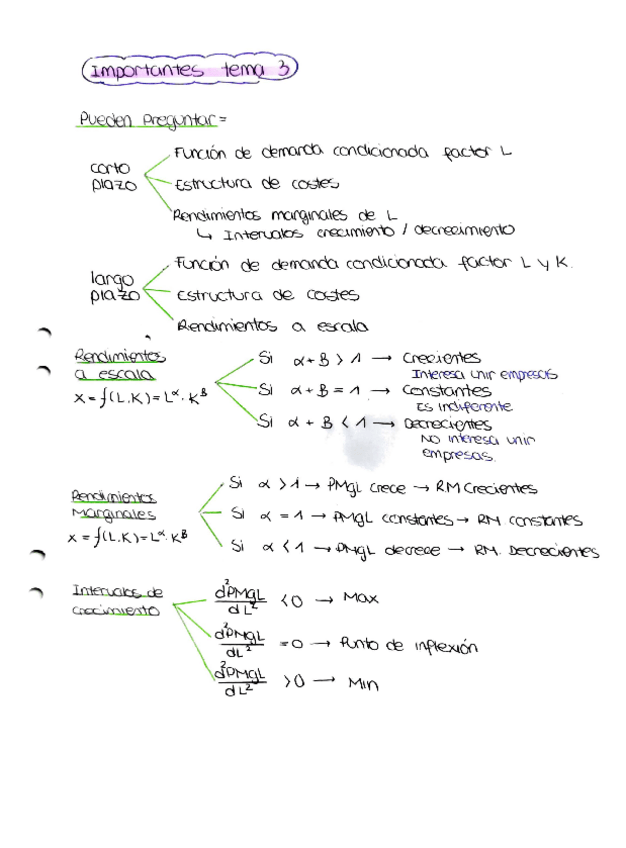 Importantes tema 3
Pueden preguntar=
corto plazo
Función de demanda condicionada factor L
Estructura de costes
Rendimientos marginales de L
↳ Intervalos crecimiento / decrecimiento
largo plazo
Función de demanda condicionada factor L y K.
Estructura de costes
Rendimientos a escala
Rendimientos a escala
x = f(L.K) = L^α · K^B
Si α + B > 1 → Crecientes
Interesa unir empresas
Si α + B = 1 → Constantes
Es indiferente
Si α + B < 1 → Decrecientes
NO interesa unir empresas.
Rendimientos Marginales
x = f(L.K) = L^α · K^B
Si α > 1 → PMgL crece → RM Crecientes
Si α = 1 → PMgL constantes → RM constantes
Si α < 1 → PMgL decrece → RM. Decrecientes
Intervalos de crecimiento
d²PMgL / dL² < 0 → Max
d²PMgL / dL² = 0 → Punto de inflexión
d²PMgL / dL² > 0 → Min